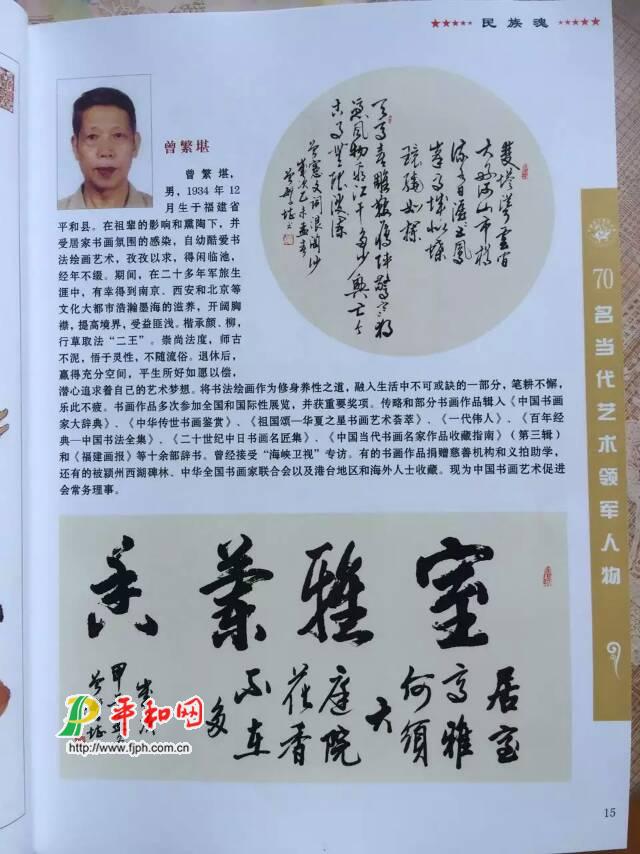 ★★★★★ 民族魂 ★★★★★
曾繁堪
曾繁堪，
男，1934 年 12
月生于福建省
平和县。在祖辈的影响和熏陶下，并
受居家书画氛围的感染，自幼酷爱书
法绘画艺术，孜孜以求，得闲临池，
经年不缀。期间，在二十多年军旅生
涯中，有幸得到南京、西安和北京等
文化大都市浩瀚墨海的滋养，开阔胸
襟，提高境界，受益匪浅。楷承颜、柳，
行草取法“二王”。崇尚法度，师古
不泥，悟于灵性，不随流俗。退休后，
赢得充分空间，平生所好如愿以偿，
潜心追求着自己的艺术梦想。将书法绘画作为修身养性之道，融入生活中不可或缺的一部分，笔耕不懈，
乐此不疲。书画作品多次参加全国和国际性展览，并获重要奖项。传略和部分书画作品辑入《中国书画
家大辞典》、《中华传世书画鉴赏》、《祖国颂—华夏之星书画艺术荟萃》、《一代伟人》、《百年经
典—中国书法全集》、《二十世纪中日书画名匠集》、《中国当代书画名家作品收藏指南》（第三辑）
和《福建画报》等十余部辞书。曾经接受“海峡卫视”专访。有的书画作品捐赠慈善机构和义拍助学，
还有的被颍州西湖碑林、中华全国书画家联合会以及港台地区和海外人士收藏。现为中国书画艺术促进
会常务理事。
室雅兰香
居室
高雅
何须
大
庭院
花香
不在
多
70名当代艺术领军人物
平和网
http://www.fjph.com.cn
15